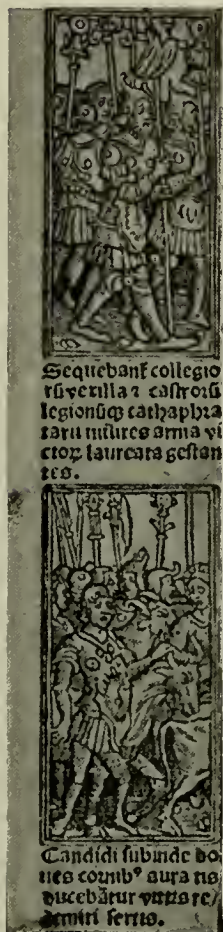 Sequebanť collegio
rũ vexilla ⁊ castrorũ
legionũq; cathaphra
tarii milites arma vi
ctoꝝ laureata gestan
tes.
Candidi subinde bo
ues cornibꝰ aura tis
ducebãtur vittis re/
demiti sertis.